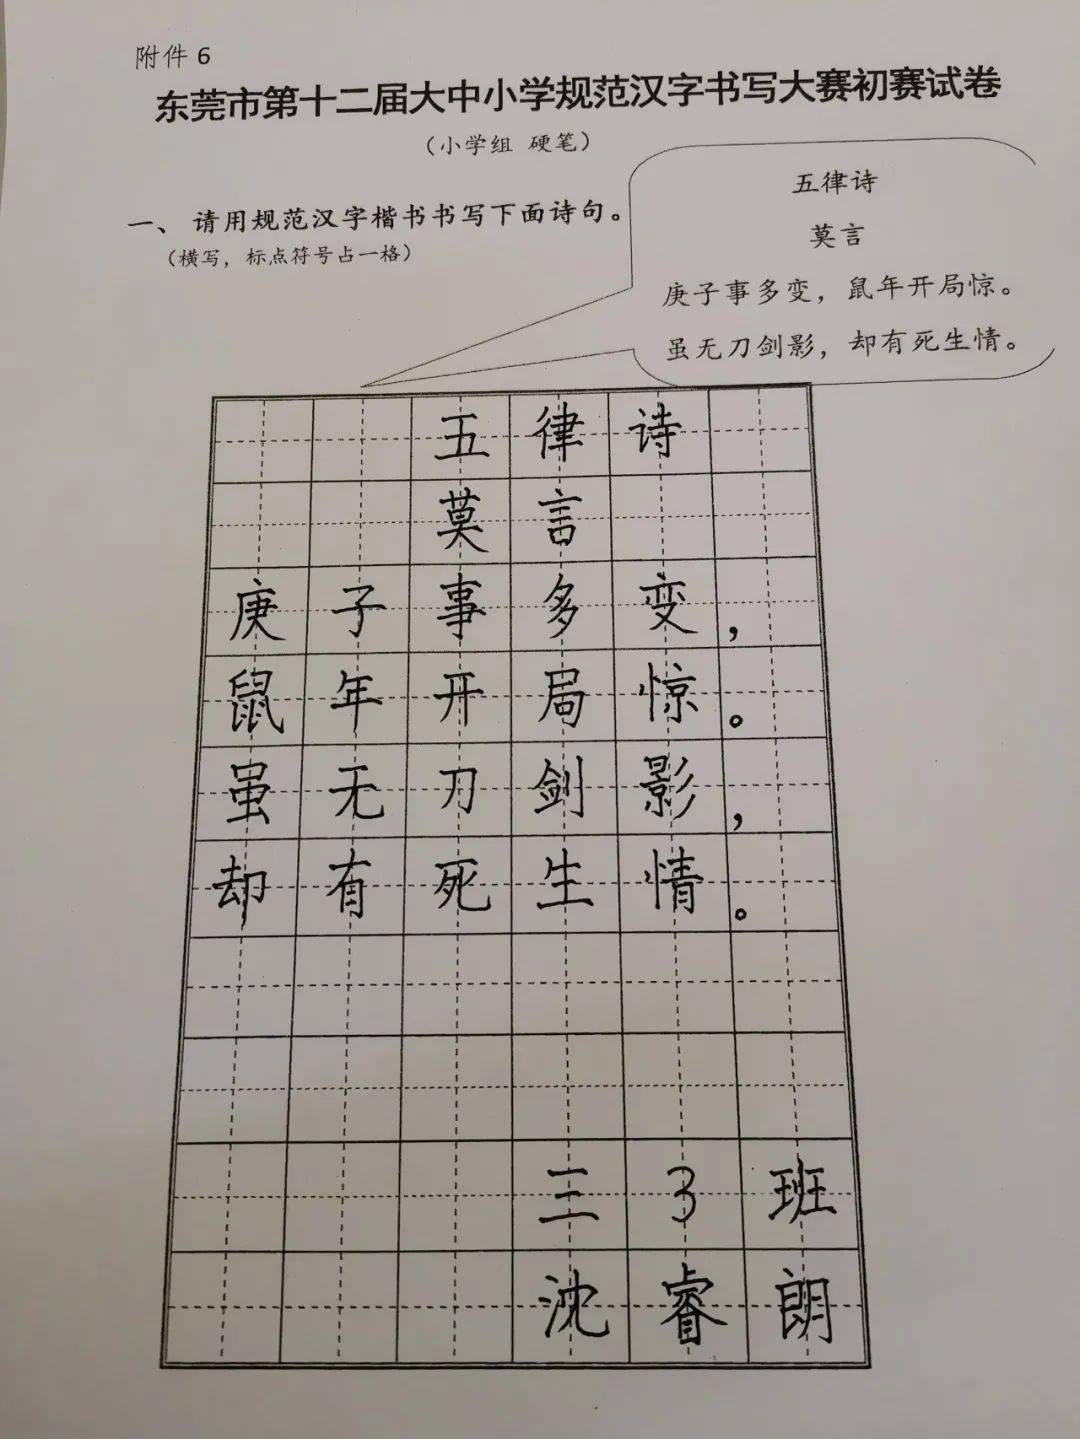 附件 6
东莞市第十二届大中小学规范汉字书写大赛初赛试卷
（小学组 硬笔）
一、请用规范汉字楷书书写下面诗句。
（横写，标点符号占一格）
五律诗
莫言
庚子事多变，鼠年开局惊。
虽无刀剑影，却有死生情。
五律诗
莫言
庚子事多变，
鼠年开局惊。
虽无刀剑影，
却有死生情。
三3班
沈睿朗